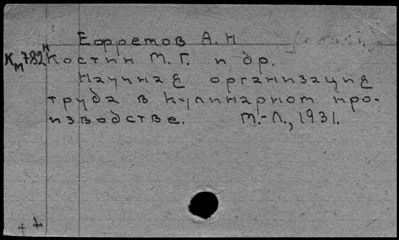 Ефретов А.Н
Км782н Костин М.Г. и др.
Научная организация
труда в кулинарном про-
изводстве. М.-Л., 1931.